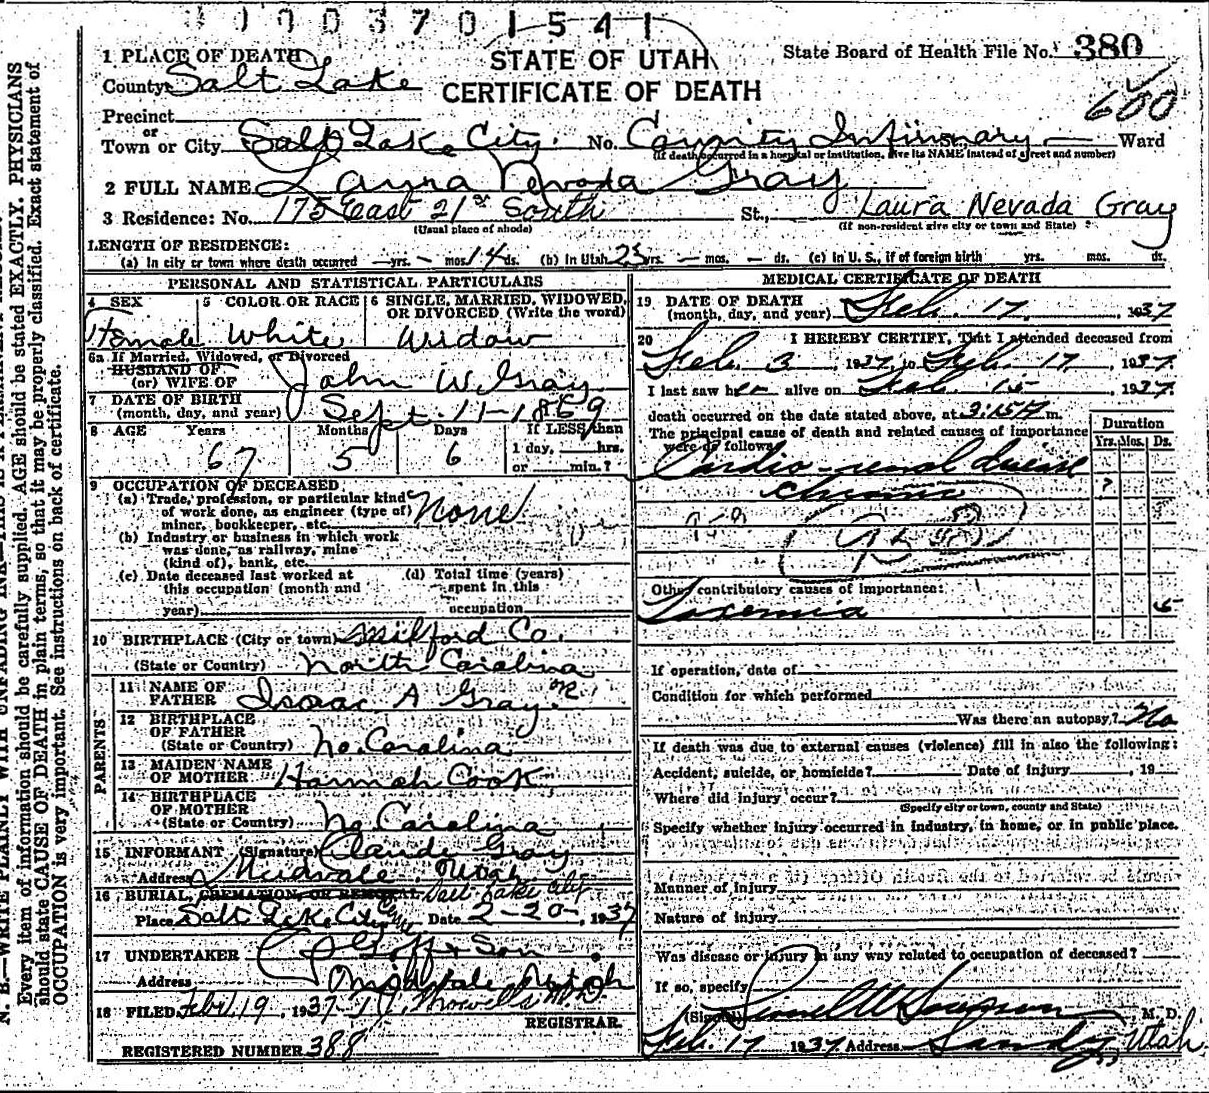 0003701541
1 PLACE OF DEATH
STATE OF UTAH
State Board of Health File No. 380
County Salt Lake
CERTIFICATE OF DEATH
600
Precinct
or
Town or City Salt Lake City. No. County Infirmary Ward
(If death occurred in a hospital or institution, give its NAME instead of street and number)
2 FULL NAME Laura Nevada Gray
3 Residence: No. 175 East 21st South St., Laura Nevada Gray
(Usual place of abode) (If non-resident give city or town and State)
LENGTH OF RESIDENCE:
(a) In city or town where death occurred — yrs. — mos. 14 ds. (b) In Utah 23 yrs. — mos. — ds. (c) In U. S., if of foreign birth yrs. mos. ds.
PERSONAL AND STATISTICAL PARTICULARS
4 SEX 5 COLOR OR RACE 6 SINGLE, MARRIED, WIDOWED,
OR DIVORCED (Write the word)
Female White Widow
6a If Married, Widowed, or Divorced
HUSBAND OF
(or) WIFE OF John W. Gray
7 DATE OF BIRTH
(month, day, and year) Sept. 11-1869
8 AGE Years Months Days If LESS than
67 5 6 1 day, hrs.
or min.?
9 OCCUPATION OF DECEASED
(a) Trade, profession, or particular kind
of work done, as engineer (type of)
miner, bookkeeper, etc. None
(b) Industry or business in which work
was done, as railway, mine
(kind of), bank, etc.
(c) Date deceased last worked at (d) Total time (years)
this occupation (month and spent in this
year) occupation
10 BIRTHPLACE (City or town) Milkford Co.
(State or Country) North Carolina
PARENTS
11 NAME OF
FATHER Isaac A Gray
12 BIRTHPLACE
OF FATHER
(State or Country) No. Carolina
13 MAIDEN NAME
OF MOTHER Hannah Cook
14 BIRTHPLACE
OF MOTHER
(State or Country) No Carolina
15 INFORMANT (Signature) Claude Gray
Address Midvale, Utah
16 BURIAL, CREMATION, OR REMOVAL Salt Lake City
Place Salt Lake City Date 2-20-, 1937
17 UNDERTAKER Goff & Son
Address Midvale Utah
18 FILED Feb. 19, 1937 M.D.
REGISTRAR.
REGISTERED NUMBER 388
MEDICAL CERTIFICATE OF DEATH
19 DATE OF DEATH
(month, day, and year) Feb. 17, 1937
20 I HEREBY CERTIFY, That I attended deceased from
Feb. 3 1937, to Feb. 17, 1937.
I last saw her alive on Feb. 15, 1937
death occurred on the date stated above, at 3:15 m.
The principal cause of death and related causes of importance
were as follows:
Duration
Yrs. Mos. Ds.
Cardio-renal disease
chronic ?
Other contributory causes of importance:
Toxemia
If operation, date of
Condition for which performed
Was there an autopsy? No
If death was due to external causes (violence) fill in also the following:
Accident, suicide, or homicide? Date of injury , 19
Where did injury occur?
(Specify city or town, county and State)
Specify whether injury occurred in industry, in home, or in public place.
Manner of injury
Nature of injury
Was disease or injury in any way related to occupation of deceased?
If so, specify
(Signed) M. D.
Feb. 17 1937 Address Sandy, Utah
N. B.—WRITE PLAINLY WITH UNFADING INK—THIS IS A PERMANENT RECORD.
Every item of information should be carefully supplied. AGE should be stated EXACTLY. PHYSICIANS
should state CAUSE OF DEATH in plain terms, so that it may be properly classified. Exact statement of
OCCUPATION is very important. See instructions on back of certificate.